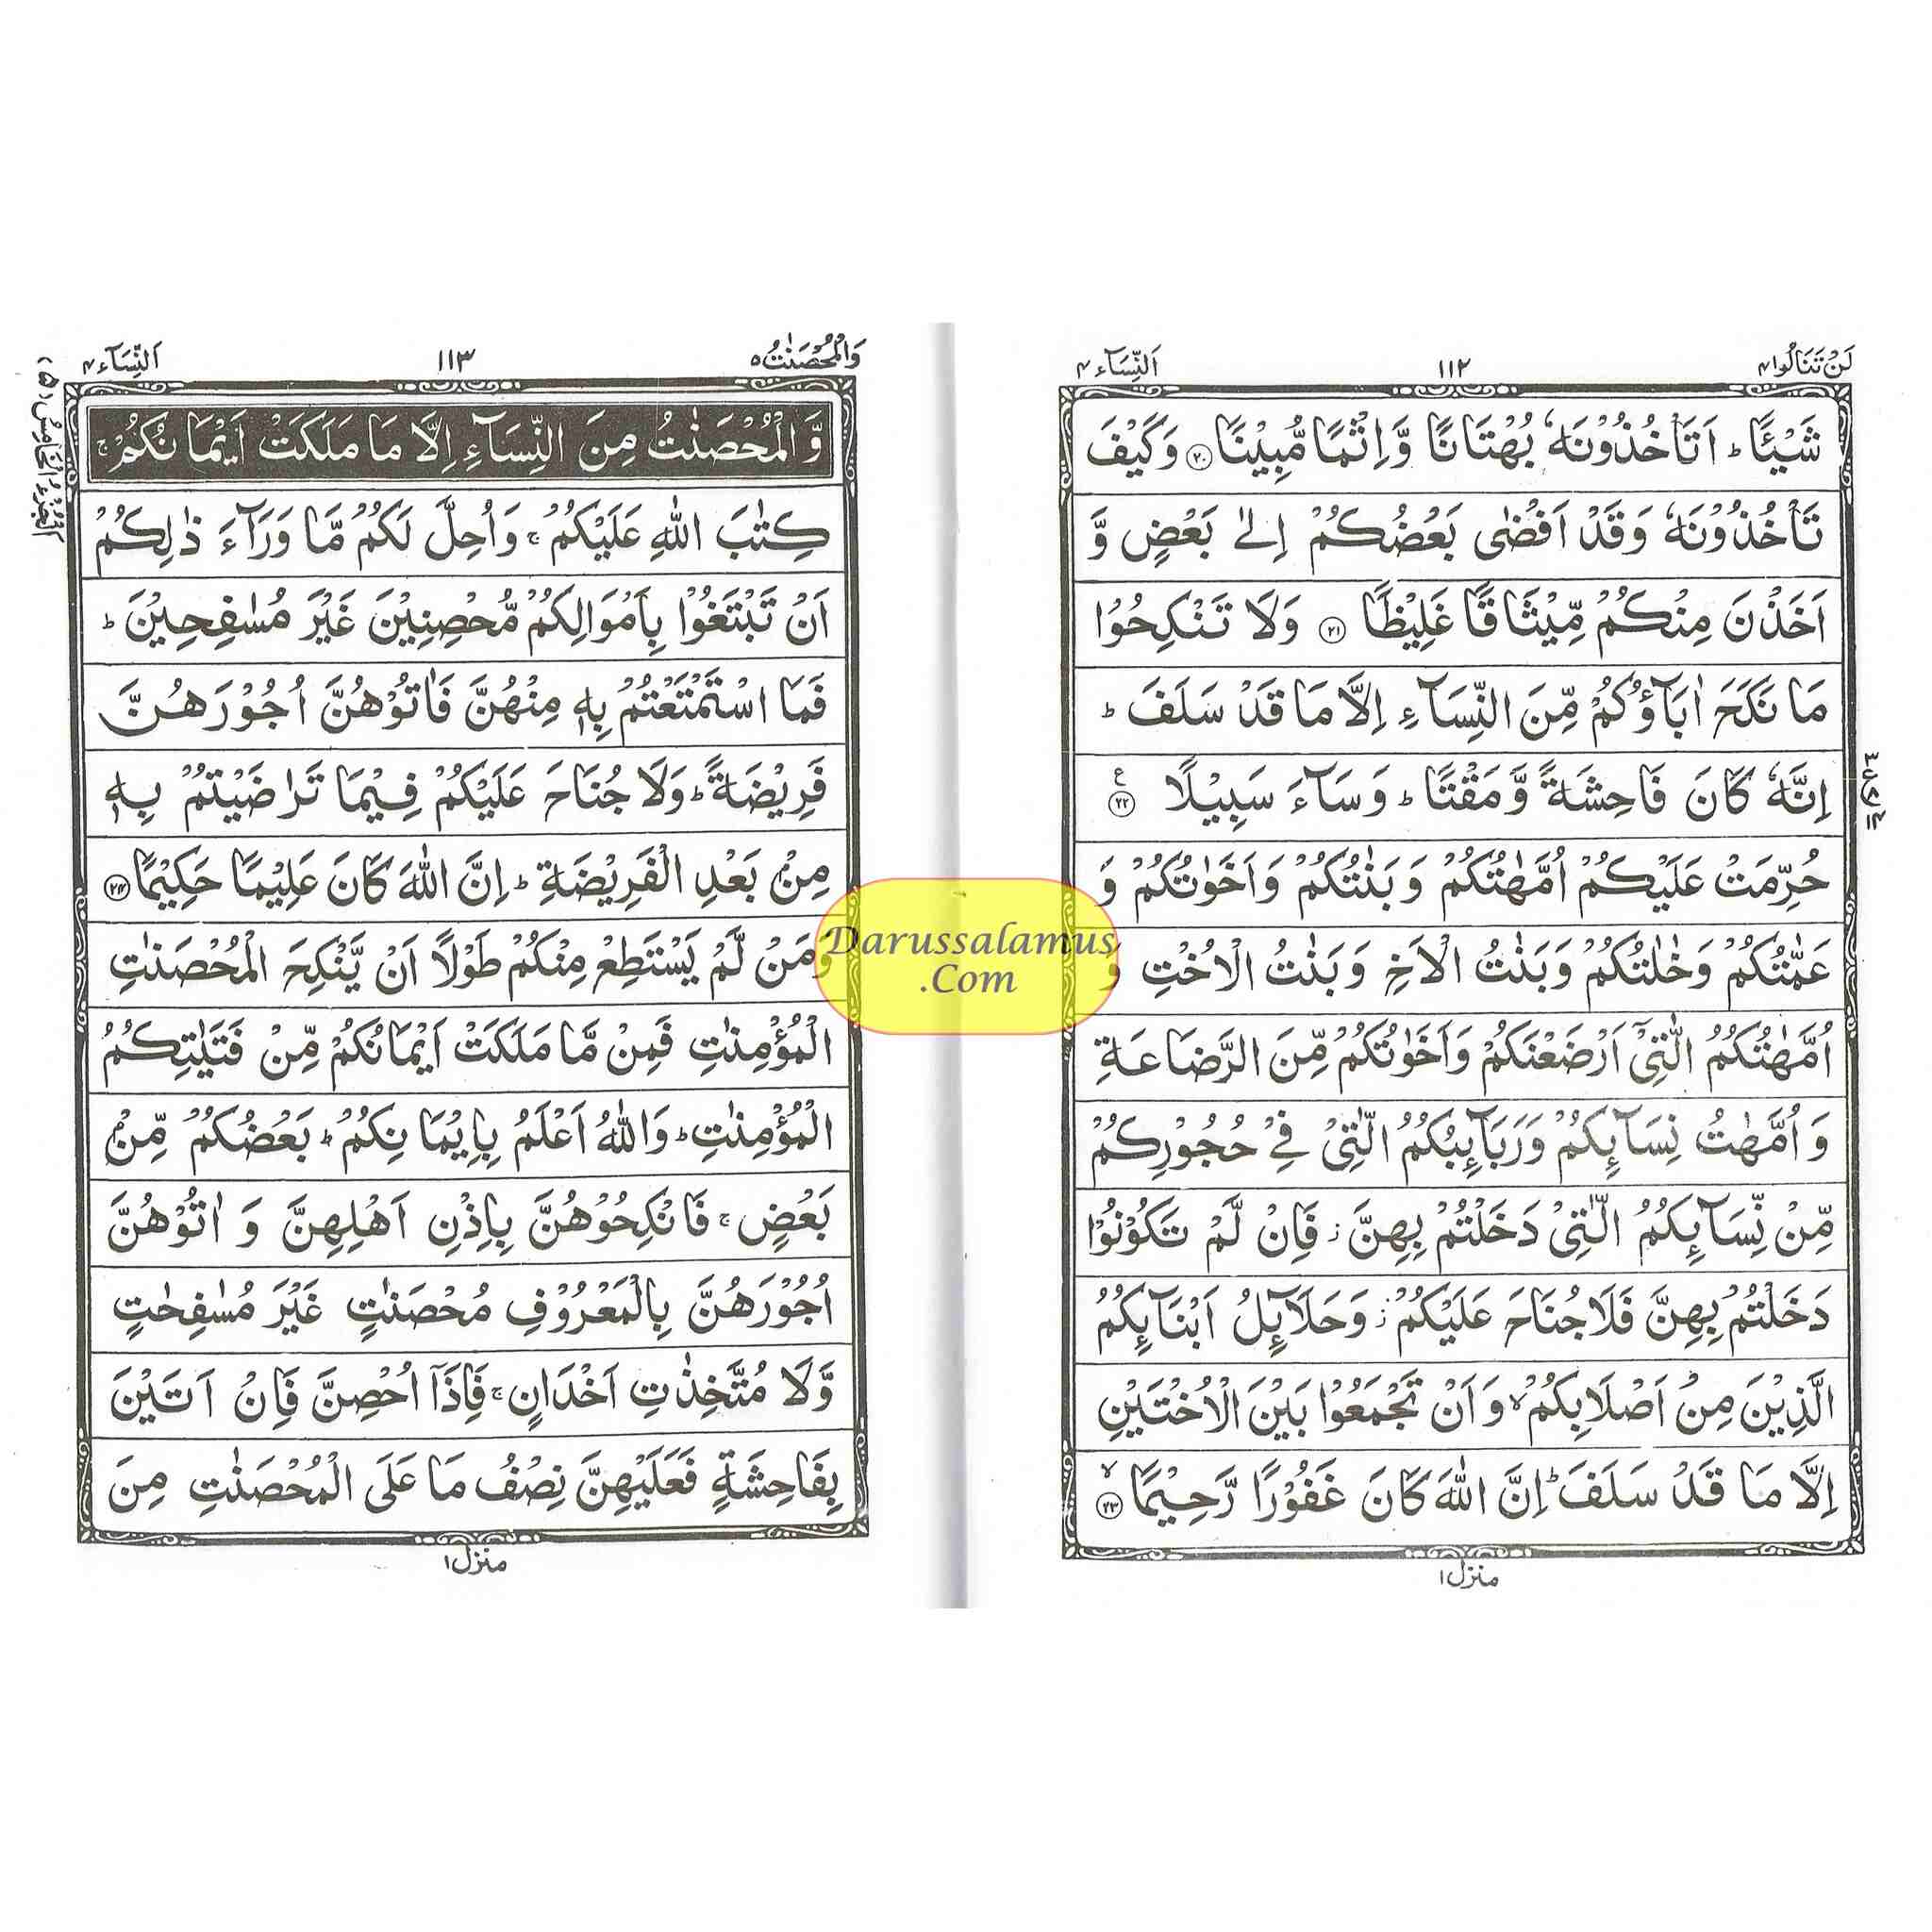 لَنْ تَنَالُوا ٤
١١٢
اَلنِّسَآء ٤
شَيْـًٔا ؕ اَتَاْخُذُوْنَهٗ بُهْتَانًا وَّاِثْمًا مُّبِيْنًا ﴿٢٠﴾ وَكَيْفَ
تَاْخُذُوْنَهٗ وَقَدْ اَفْضٰى بَعْضُكُمْ اِلٰى بَعْضٍ وَّ
اَخَذْنَ مِنْكُمْ مِّيْثَاقًا غَلِيْظًا ﴿٢١﴾ وَلَا تَنْكِحُوْا
مَا نَكَحَ اٰبَآؤُكُمْ مِّنَ النِّسَآءِ اِلَّا مَا قَدْ سَلَفَ ؕ
اِنَّهٗ كَانَ فَاحِشَةً وَّمَقْتًا ؕ وَسَآءَ سَبِيْلًا ﴿٢٢﴾ ع
حُرِّمَتْ عَلَيْكُمْ اُمَّهٰتُكُمْ وَبَنٰتُكُمْ وَاَخَوٰتُكُمْ وَ
عَمّٰتُكُمْ وَخٰلٰتُكُمْ وَبَنٰتُ الْاَخِ وَبَنٰتُ الْاُخْتِ وَ
اُمَّهٰتُكُمُ الّٰتِيْٓ اَرْضَعْنَكُمْ وَاَخَوٰتُكُمْ مِّنَ الرَّضَاعَةِ
وَاُمَّهٰتُ نِسَآئِكُمْ وَرَبَآئِبُكُمُ الّٰتِيْ فِيْ حُجُوْرِكُمْ
مِّنْ نِّسَآئِكُمُ الّٰتِيْ دَخَلْتُمْ بِهِنَّ ؗ فَاِنْ لَّمْ تَكُوْنُوْا
دَخَلْتُمْ بِهِنَّ فَلَا جُنَاحَ عَلَيْكُمْ ؗ وَحَلَآئِلُ اَبْنَآئِكُمُ
الَّذِيْنَ مِنْ اَصْلَابِكُمْ ۙ وَاَنْ تَجْمَعُوْا بَيْنَ الْاُخْتَيْنِ
اِلَّا مَا قَدْ سَلَفَ ؕ اِنَّ اللّٰهَ كَانَ غَفُوْرًا رَّحِيْمًا ﴿٢٣﴾ ۙ
منزل ١
وَالْمُحْصَنٰتُ ٥
١١٣
اَلنِّسَآء ٤
اَلْجُزْءُ الْخَامِسُ (٥)
وَّالْمُحْصَنٰتُ مِنَ النِّسَآءِ اِلَّا مَا مَلَكَتْ اَيْمَانُكُمْ ۚ
كِتٰبَ اللّٰهِ عَلَيْكُمْ ۚ وَاُحِلَّ لَكُمْ مَّا وَرَآءَ ذٰلِكُمْ
اَنْ تَبْتَغُوْا بِاَمْوَالِكُمْ مُّحْصِنِيْنَ غَيْرَ مُسٰفِحِيْنَ ؕ
فَمَا اسْتَمْتَعْتُمْ بِهٖ مِنْهُنَّ فَاٰتُوْهُنَّ اُجُوْرَهُنَّ
فَرِيْضَةً ؕ وَلَا جُنَاحَ عَلَيْكُمْ فِيْمَا تَرَاضَيْتُمْ بِهٖ
مِنْۢ بَعْدِ الْفَرِيْضَةِ ؕ اِنَّ اللّٰهَ كَانَ عَلِيْمًا حَكِيْمًا ﴿٢٤﴾
وَمَنْ لَّمْ يَسْتَطِعْ مِنْكُمْ طَوْلًا اَنْ يَّنْكِحَ الْمُحْصَنٰتِ
الْمُؤْمِنٰتِ فَمِنْ مَّا مَلَكَتْ اَيْمَانُكُمْ مِّنْ فَتَيٰتِكُمُ
الْمُؤْمِنٰتِ ؕ وَاللّٰهُ اَعْلَمُ بِاِيْمَانِكُمْ ؕ بَعْضُكُمْ مِّنْۢ
بَعْضٍ ۚ فَانْكِحُوْهُنَّ بِاِذْنِ اَهْلِهِنَّ وَاٰتُوْهُنَّ
اُجُوْرَهُنَّ بِالْمَعْرُوْفِ مُحْصَنٰتٍ غَيْرَ مُسٰفِحٰتٍ
وَّلَا مُتَّخِذٰتِ اَخْدَانٍ ۚ فَاِذَآ اُحْصِنَّ فَاِنْ اَتَيْنَ
بِفَاحِشَةٍ فَعَلَيْهِنَّ نِصْفُ مَا عَلَى الْمُحْصَنٰتِ مِنَ
منزل ١
Darussalamus
.Com